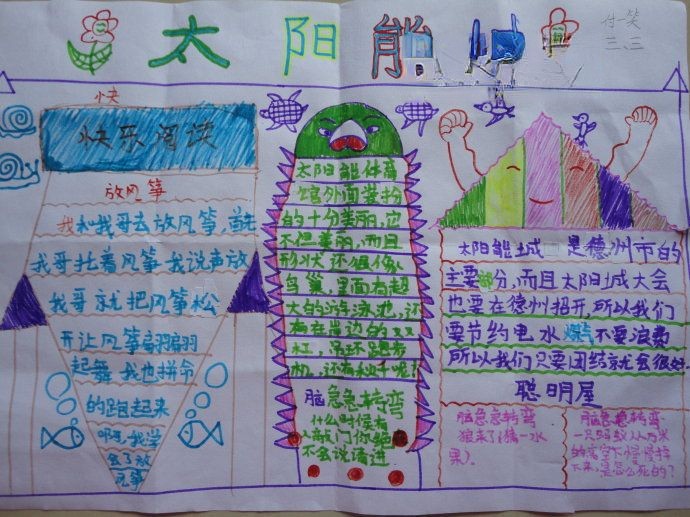 太阳能
付一笑
三、三
快
快乐阅读
放风筝
我和我哥去放风筝,首先
我哥扯着风筝我说声放
我哥就把风筝松
开让风筝翩翩
起舞我也拼命
的跑起来
啊我学
会了放
风筝
太阳能体育
馆外面装扮
的十分美丽,它
不但美丽,而且
形状还很像
鸟巢,里面有超
大的游泳池,还
有在出边的双
杠,吊环跑步
机,还有秋千呢?
脑急急转弯
什么时候有
人敲门你绝
不会说请进
太阳能城 是德州市的
主要部分,而且太阳城大会
也要在德州招开,所以我们
要节约电水 不要浪费
所以我们只要团结就会很好.
聪明屋
脑急急转弯
狼来了(猜一水
果)。
脑急急转弯
一只蚂蚁从万米
的高空下慢慢掉
下来,是怎么死的?